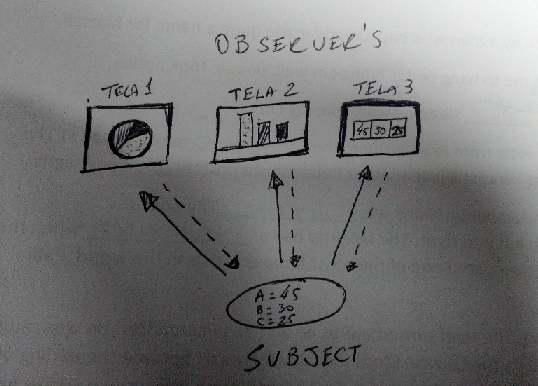 OBSERVER'S
TELA 1
TELA 2
TELA 3
45 30 25
A = 45
B = 30
C = 25
SUBJECT